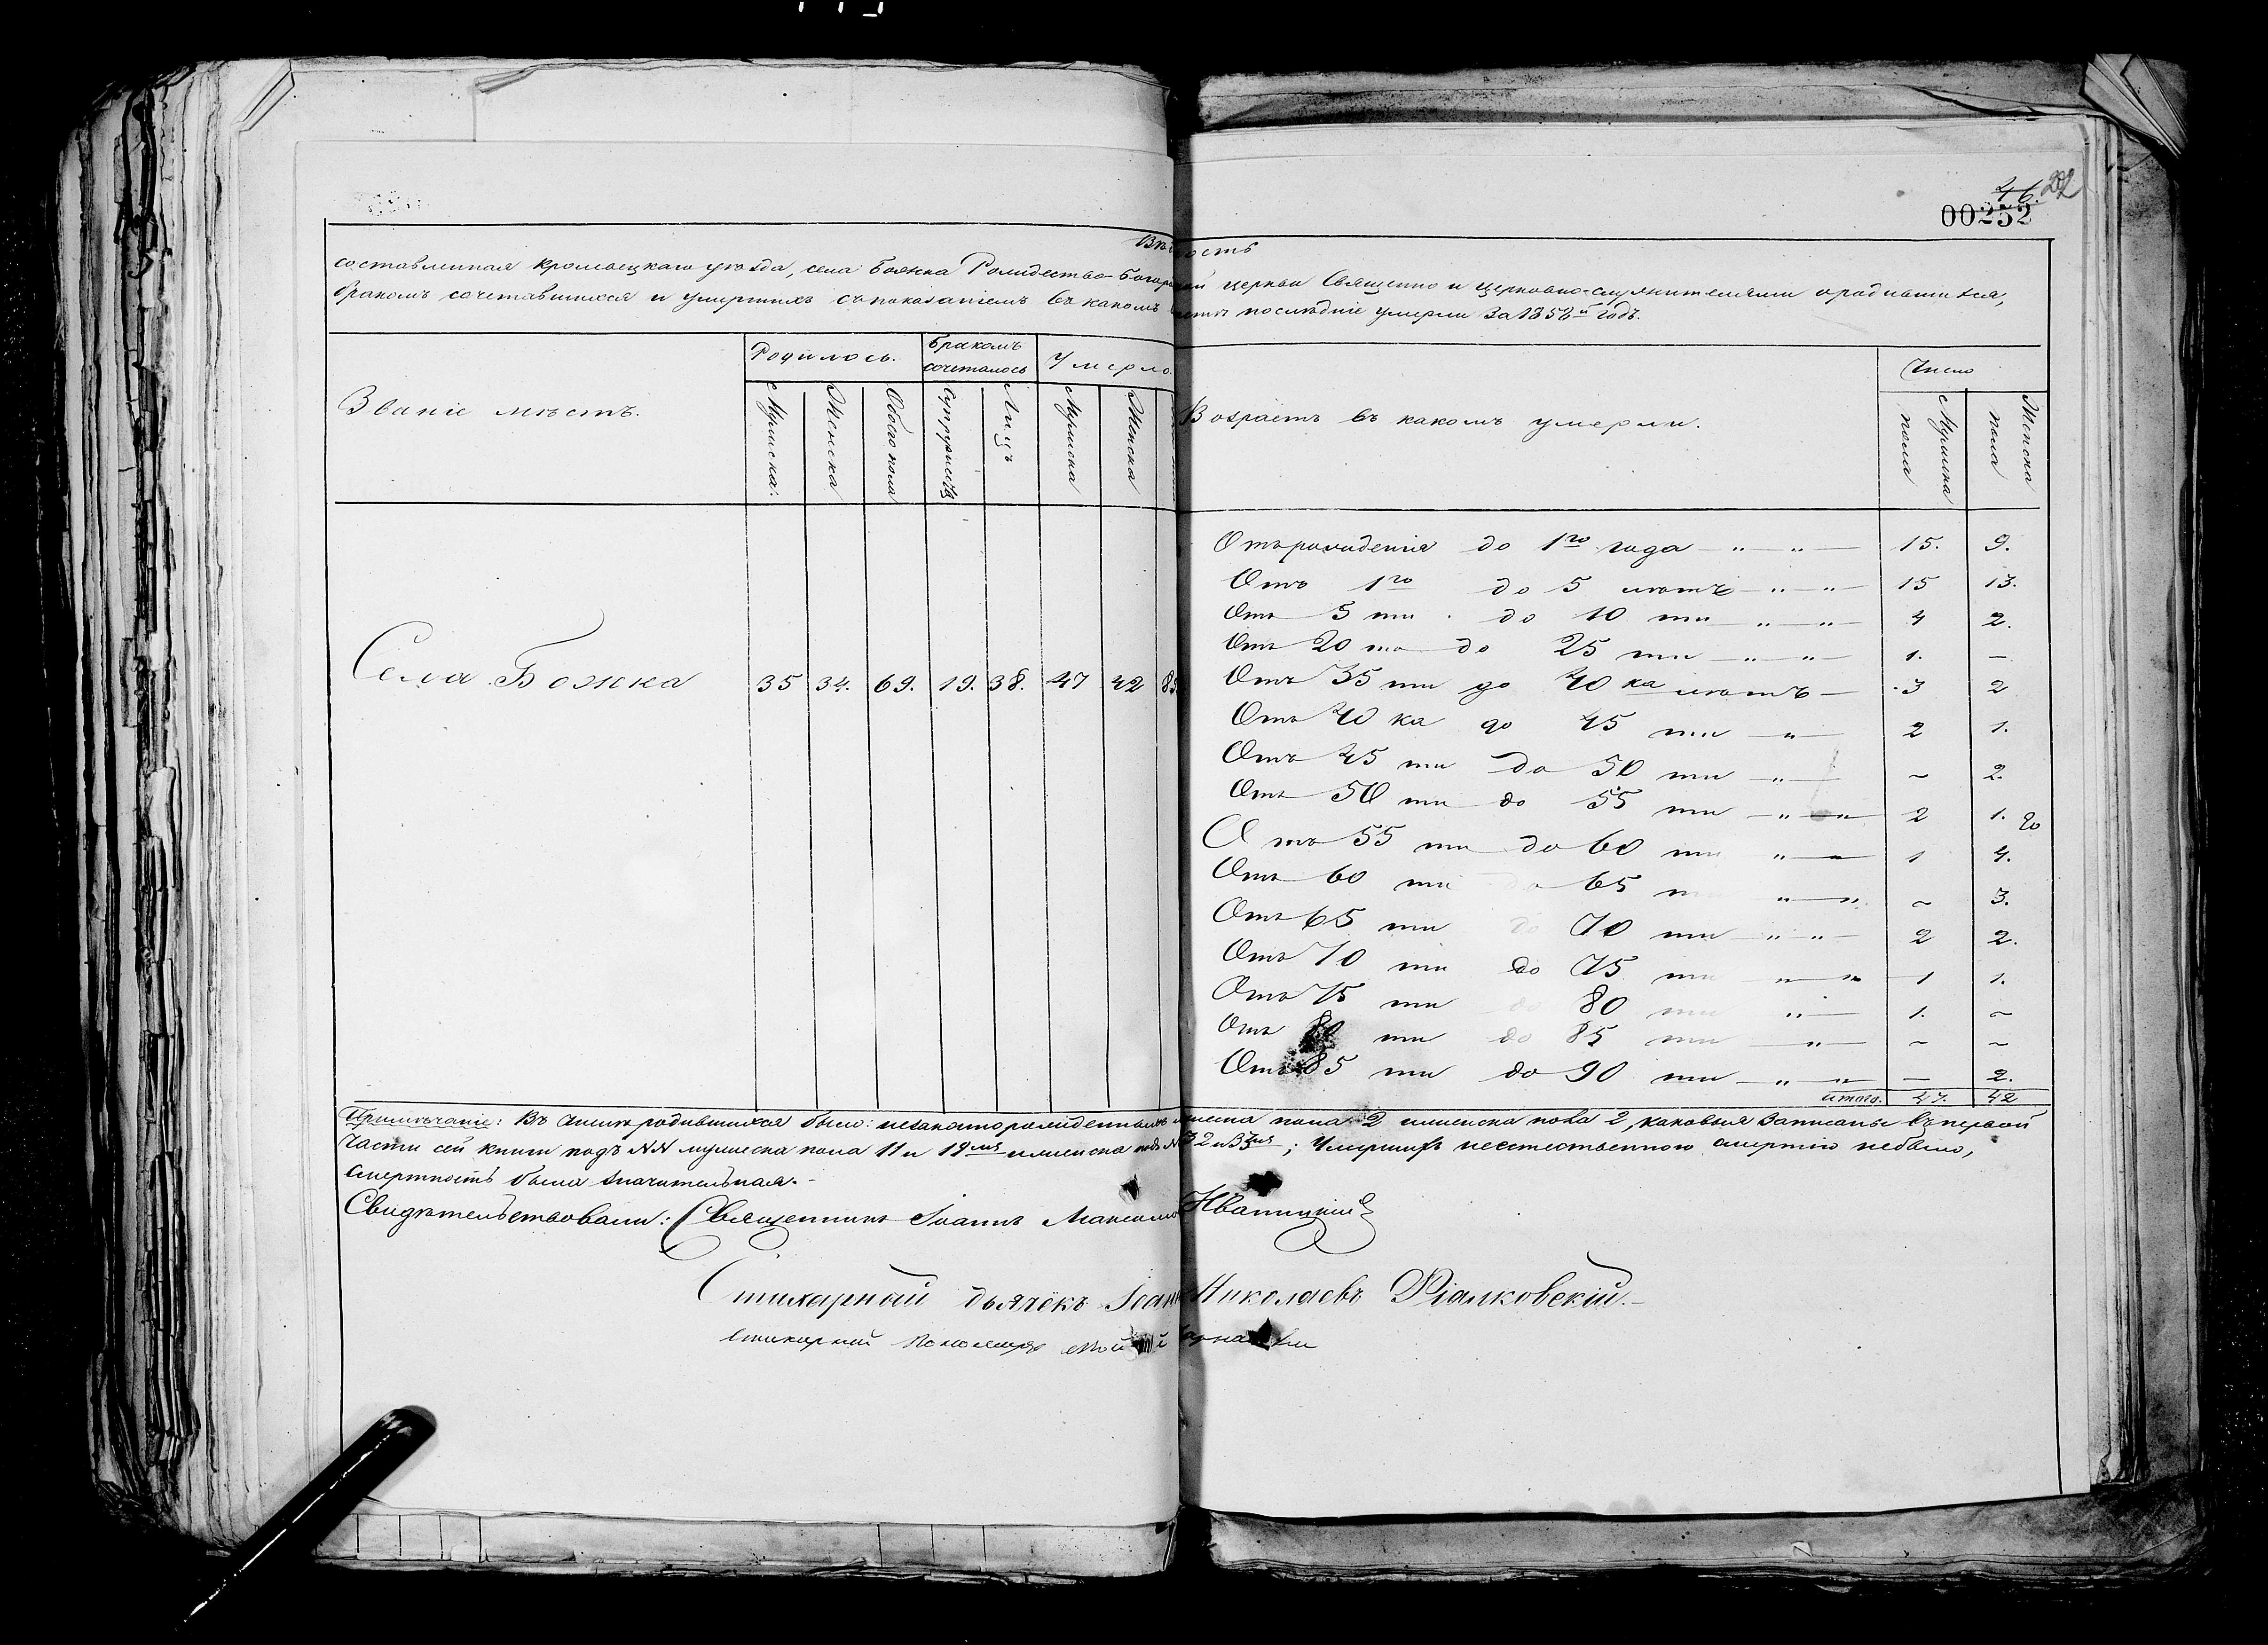 46. 202
00252
Вѣдомость
составленная Кролевецкаго уѣзда, села Божка Рождество-Богородичной церкви Священно и церковно-служителями о родившихся,
бракомъ сочетавшихся и умершихъ съ показаніемъ въ какомъ послѣдніе умерли за 1858й годъ.
Званіе мѣстъ.
Родилось.
Бракомъ сочеталось
Умерло.
Мужеска.
Женска
Обоего пола
Супружествъ
Лицъ
Мужеска
Женска
Возрастъ въ какомъ умерли.
Число
Мужеска пола
Женска пола
Села Божка 35 34. 69. 19. 38. 47 42 89
Отъ рожденія до 1го года — „ „ — 15. 9.
Отъ 1го до 5 лѣтъ — „ — „ 15 13.
Отъ 5 ти до 10 ти — „ — „ — 4 2.
Отъ 20 ти до 25 ти — „ — „ 1. —
Отъ 35 ти до 40 ка лѣтъ — 3 2
Отъ 40 ка до 45 ти — „ 2 1.
Отъ 45 ти до 50 ти — „ — ~ 2.
Отъ 50 ти до 55 ти — „ — „ 2 1. 20
Отъ 55 ти до 60 ти „ — 1 4.
Отъ 60 ти до 65 ти „ — „ ~ 3.
Отъ 65 ти до 70 ти — „ — „ 2 2.
Отъ 70 ти до 75 ти „ — „ 1 1.
Отъ 75 ти до 80 ти „ — 1. ~
Отъ 80 ти до 85 ти „ — ~ ~
Отъ 85 ти до 90 ти — „ — „ — 2.
итого. 47. 42
Примѣчаніе: Въ числѣ родившихся было: незаконнорожденныхъ мужеска пола 2 и женска пола 2, каковыя записаны въ первой
части сей книги подъ NN мужеска пола 11 и 19мъ и женска подъ N 32 и 33мъ; Умершихъ неестественною смертію небыло,
смертность была значительная.
Свидѣтельствовали: Священникъ Іоаннъ Иваницкій
Стихарный дьячекъ Іоаннъ Николаевъ Фіалковскій.
Стихарный Пономарь